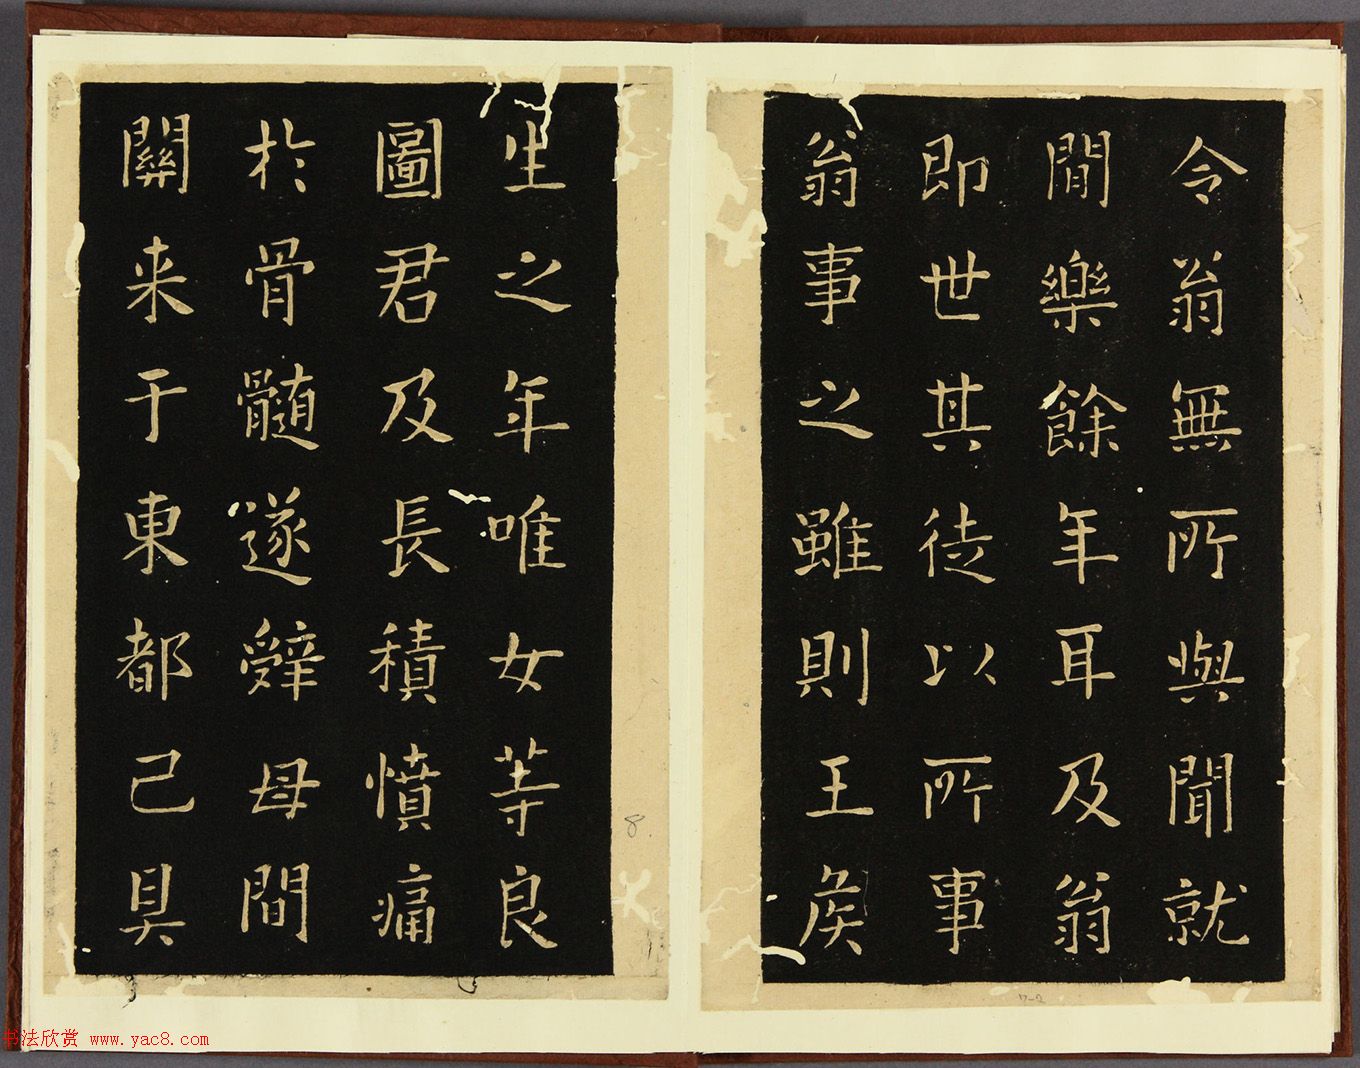 令翁無所與聞就
閒樂餘年耳及翁
即世其徒以所事
翁事之雖則王侯
生之年唯女等良
圖君及長積憤痛
於骨髓遂辭母間
關来于東都己具
8.
7-2
书法欣赏 www.yac8.com